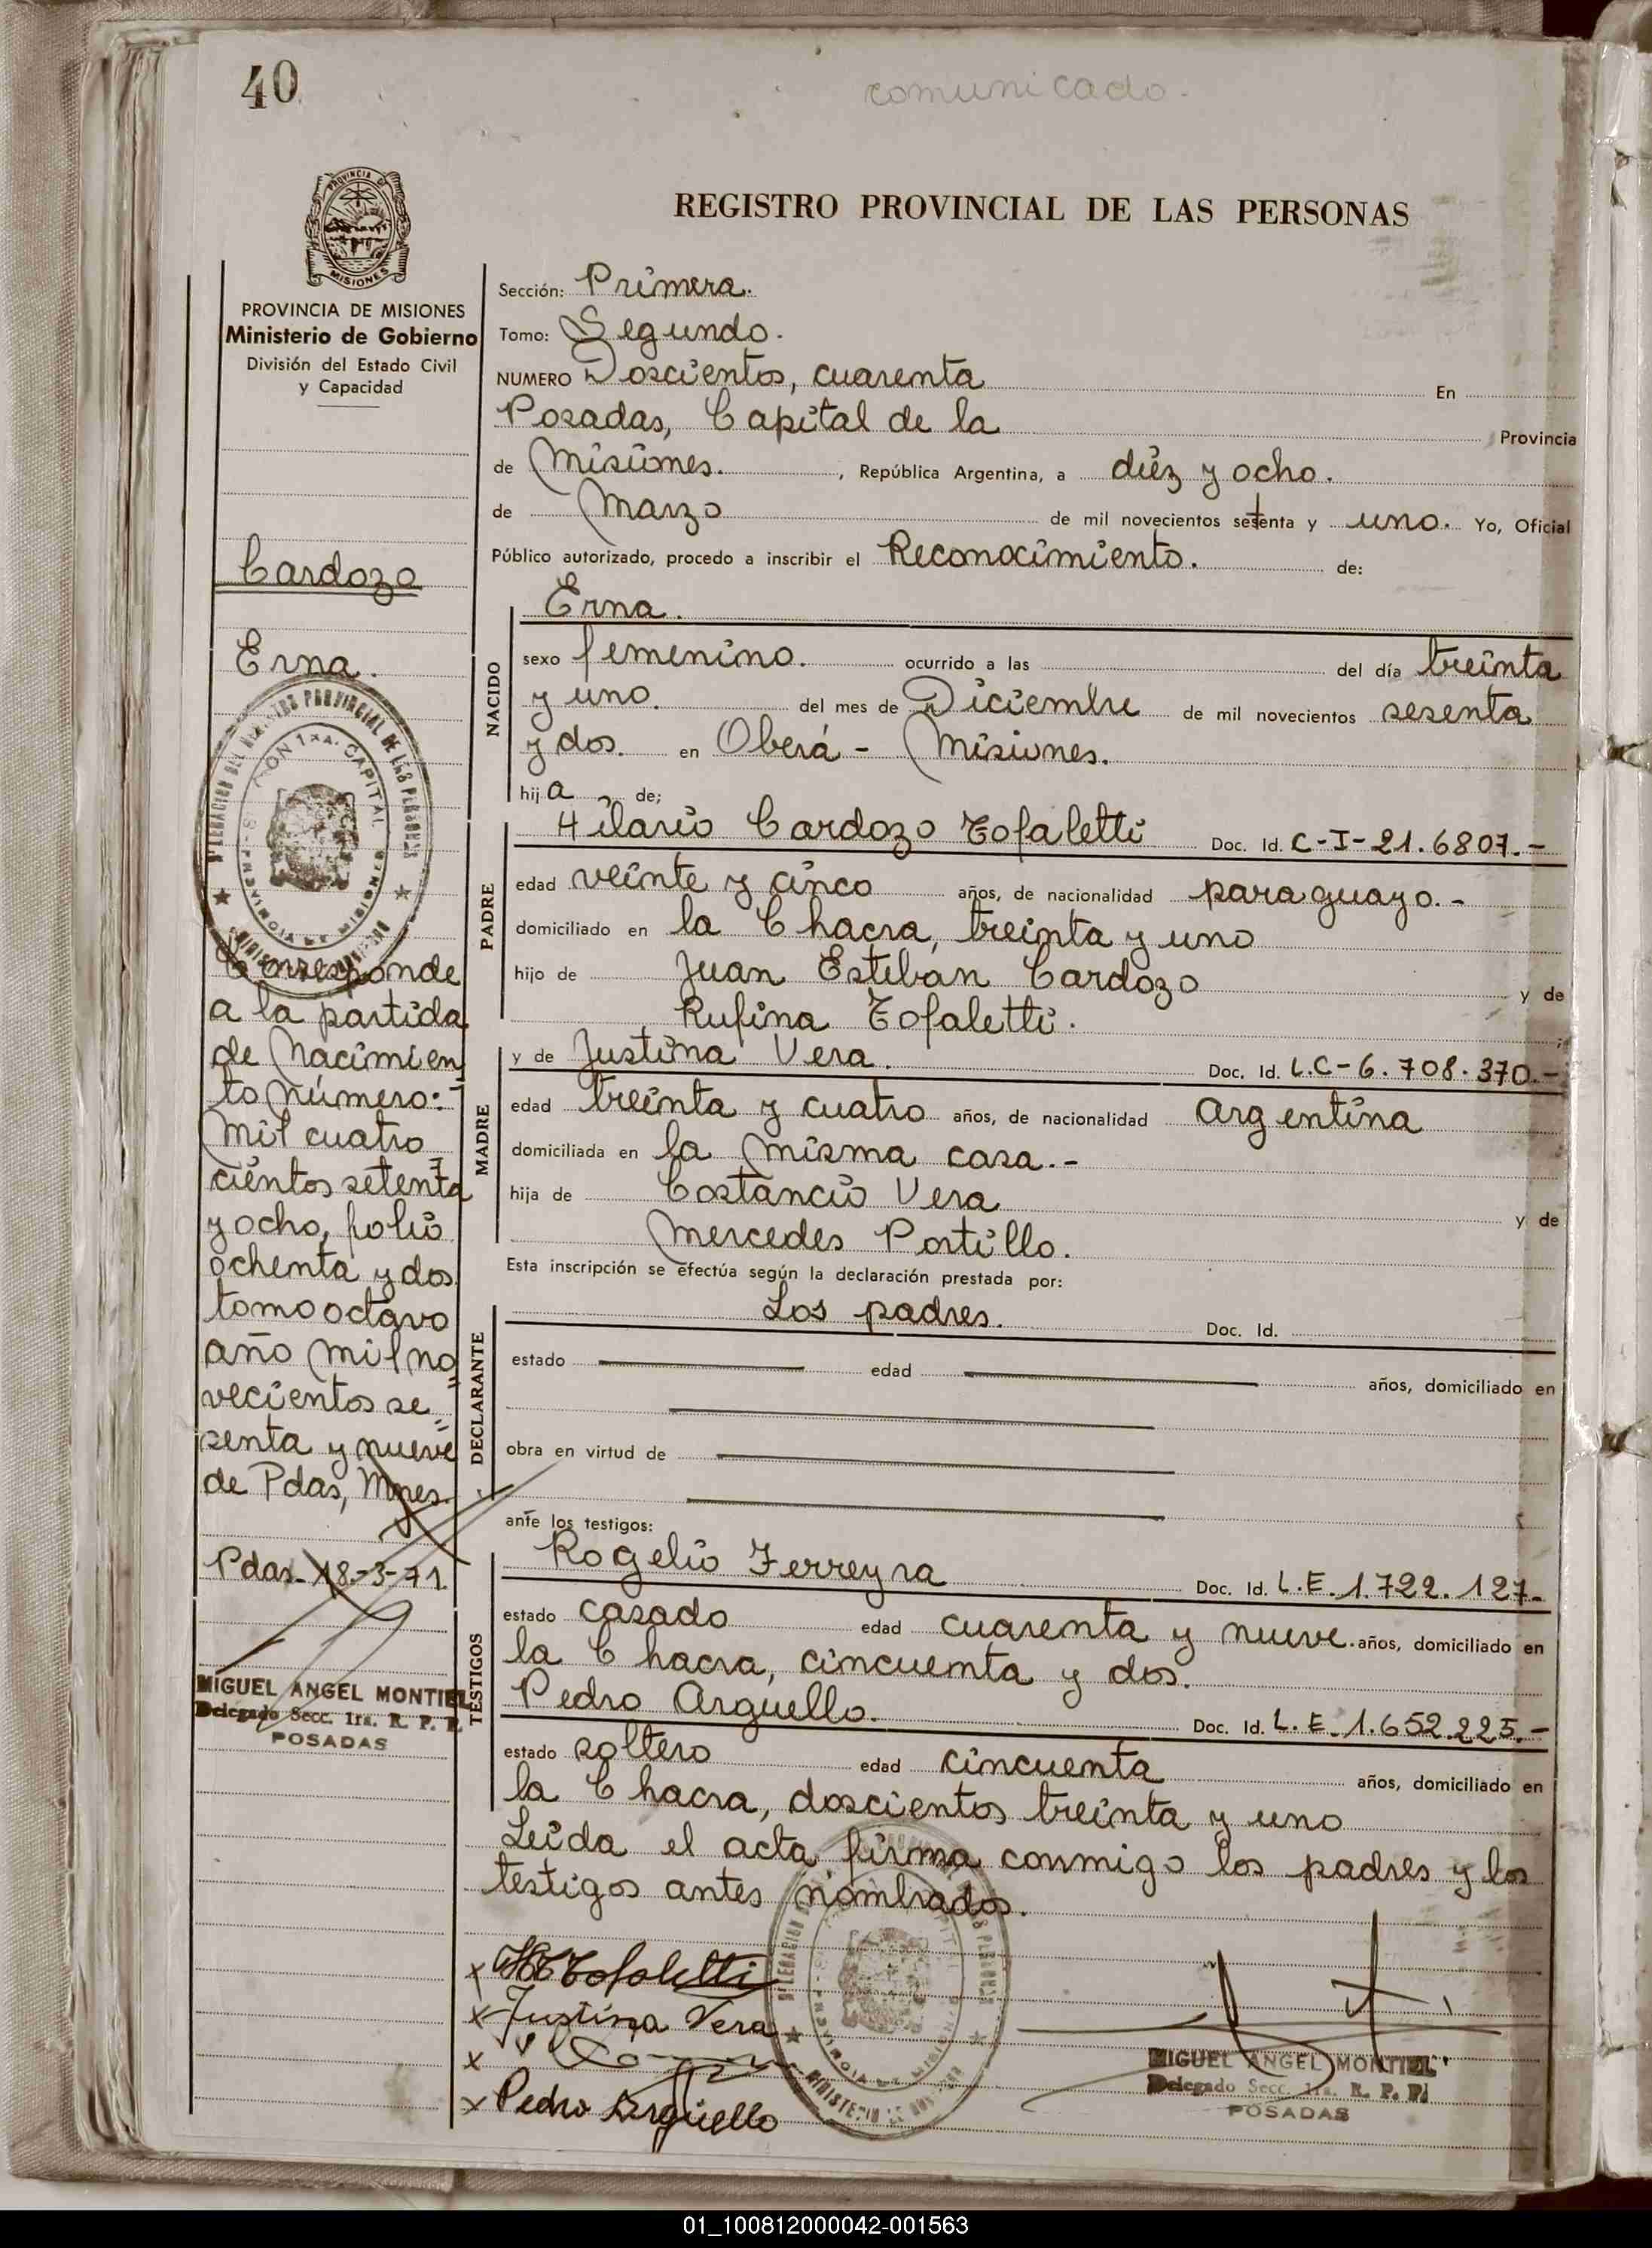 40
comunicado.
PROVINCIA DE
MISIONES
REGISTRO PROVINCIAL DE LAS PERSONAS
PROVINCIA DE MISIONES
Ministerio de Gobierno
División del Estado Civil
y Capacidad
Cardozo
Erna.
Corresponde
a la partida
de Nacimien
to número:-
Mil cuatro
cientos setenta
y ocho, folio
ochenta y dos
tomo octavo
año mil no
vecientos se
senta y nueve
de Pdas, Mnes.
Pdas-18-3-71.
MIGUEL ANGEL MONTIEL
Delegado Secc. 1ra. R. P. P.
POSADAS
Sección: Primera.
Tomo: Segundo.
NUMERO Doscientos, cuarenta En
Posadas, Capital de la Provincia
de Misiones. , República Argentina, a diez y ocho.
de Marzo de mil novecientos setenta y uno. Yo, Oficial
Público autorizado, procedo a inscribir el Reconocimiento. de:
NACIDO
Erna.
sexo femenino. ocurrido a las del día treinta
y uno. del mes de Diciembre de mil novecientos sesenta
y dos. en Oberá - Misiones.
hija de;
PADRE
Hilario Cardozo Tofaletti Doc. Id. C-I-21.6807.-
edad veinte y cinco años, de nacionalidad paraguayo.-
domiciliado en la Chacra, treinta y uno
hijo de Juan Esteban Cardozo y de
Rufina Tofaletti.
MADRE
y de Justina Vera. Doc. Id. L.C-6.708.370.-
edad treinta y cuatro años, de nacionalidad Argentina
domiciliada en la misma casa.-
hija de Costancio Vera y de
Mercedes Portillo.
Esta inscripción se efectúa según la declaración prestada por:
DECLARANTE
Los padres. Doc. Id.
estado edad años, domiciliado en
obra en virtud de
ante los testigos:
TESTIGOS
Rogelio Ferreyra Doc. Id. L.E.1.722.127-
estado casado edad cuarenta y nueve. años, domiciliado en
la Chacra, cincuenta y dos.
Pedro Arguello. Doc. Id. L.E.1.652.225.-
estado soltero edad cincuenta años, domiciliado en
la Chacra, doscientos treinta y uno
Leida el acta, firma conmigo los padres y los
testigos antes nombrados.
x Tofaletti
x Justina Vera
x
x Pedro Argüello
MIGUEL ANGEL MONTIEL
Delegado Secc. 1ra. R. P. P.
POSADAS
01_100812000042-001563